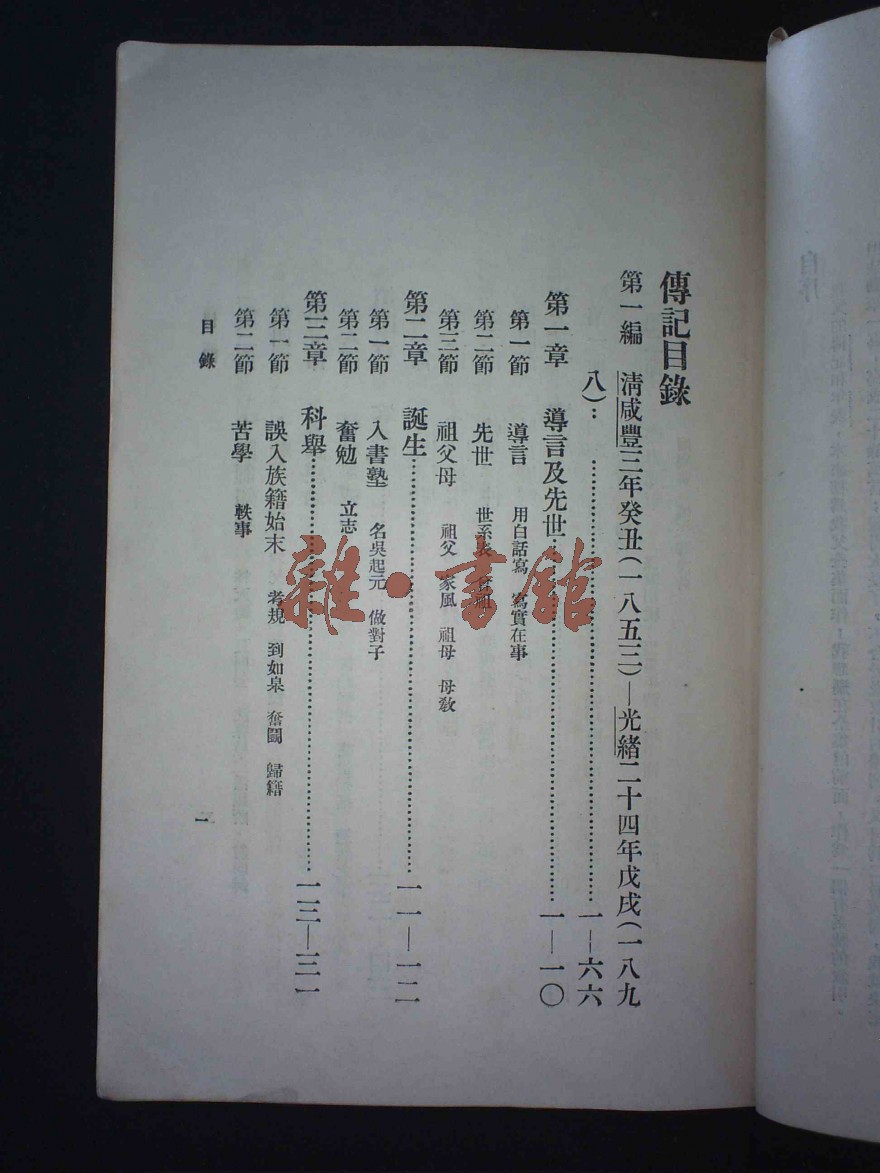 傳記目錄
第一編 淸咸豐三年癸丑(一八五三)—光緒二十四年戊戌(一八九
八):……一—六六
第一章 導言及先世……一—一〇
第一節 導言 用白話寫 寫實在事
第二節 先世 世系表
第三節 祖父母 祖父 家風 祖母 母敎
第二章 誕生……一一—一二
第一節 入書塾 名吳起元 做對子
第二節 奮勉 立志
第三章 科舉……一三—三一
第一節 誤入族籍始末 考規 到如臯 奮鬭 歸籍
第二節 苦學 軼事
目錄
一
雜·書館
自序